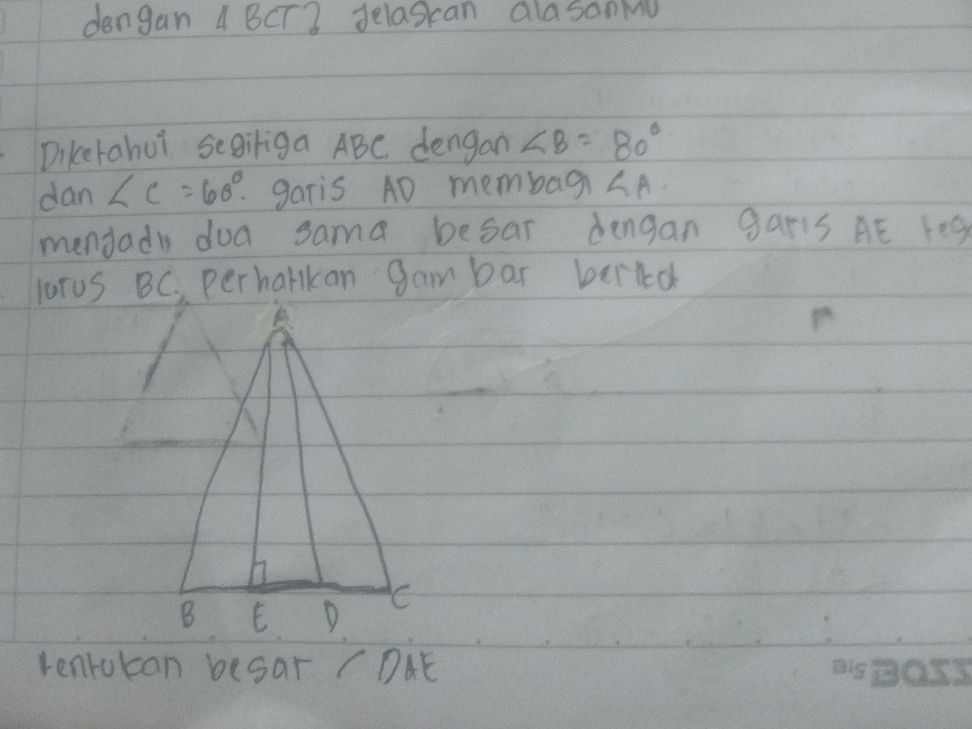 dengan ∆ BCT? Jelaskan alasanmu
Diketahui segitiga ABC dengan ∠B = 80°
dan ∠C = 60°. garis AD membagi ∠A.
menjadi dua sama besar dengan garis AE teg
lurus BC. Perhatikan gambar berikut
A
B E D C
tentukan besar ∠ DAE
BOSS